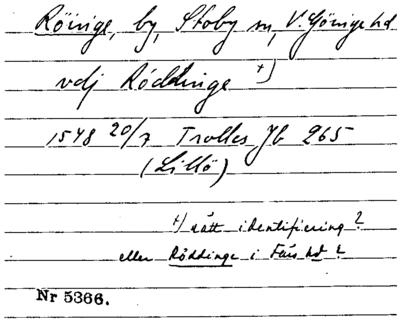 Röinge, by, Stoby sn, V. Göinge hd
vdj Röddinge +)
1548 20/7 Trolles Jb 265
(Lillö)
+) rätt identifiering?
eller Röddinge i Färs hd?
Nr 5366.